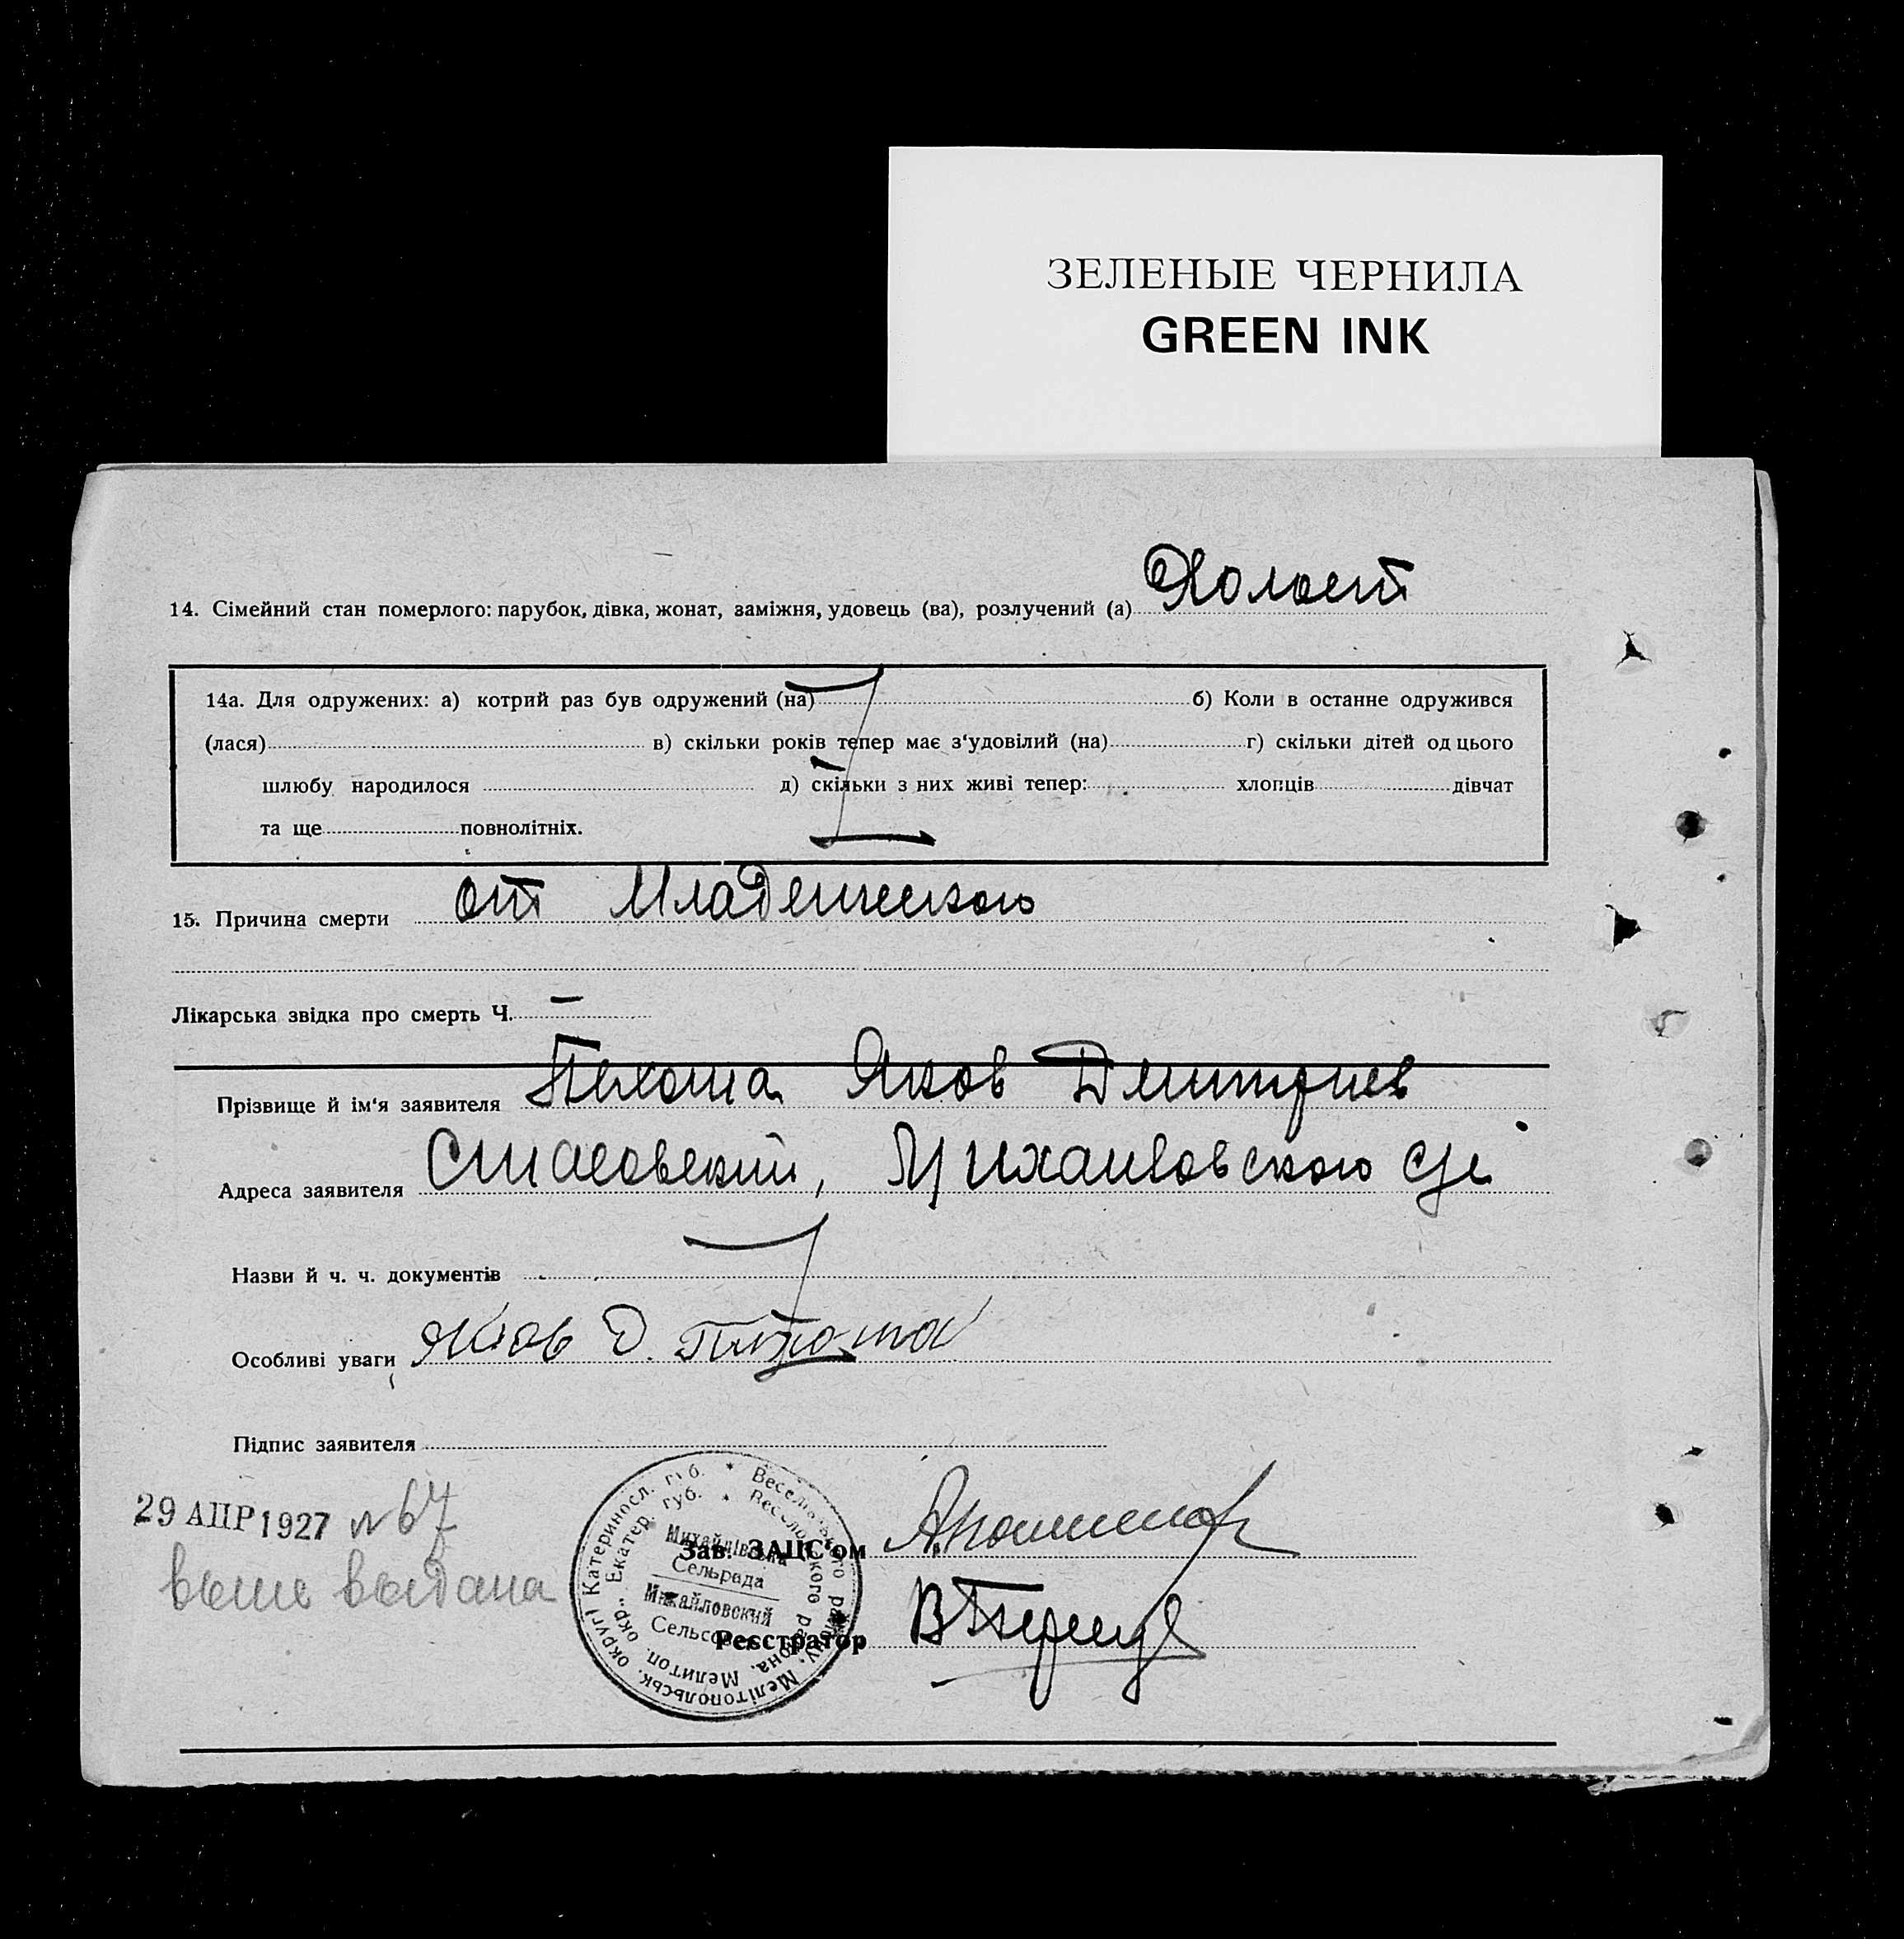 ЗЕЛЕНЫЕ ЧЕРНИЛА
GREEN INK
14. Сімейний стан померлого: парубок, дівка, жонат, заміжня, удовець (ва), розлучений (а) Холост
14а. Для одружених: а) котрий раз був одружений (на) б) Коли в останне одружився
(лася) в) скільки років тепер має з'удовілий (на) г) скільки дітей од цього
шлюбу народилося д) скільки з них живі тепер: хлопців дівчат
та ще повнолітніх.
15. Причина смерти от Младенческого
Лікарська звідка про смерть Ч. —
Прізвище й ім'я заявителя Пехота Яков Дмитриев
Адреса заявителя Стасовский, Михайловского с/с
Назви й ч. ч. документів
Особливі уваги Яков Д. Пехота
Підпис заявителя
29 АПР 1927 № 67
выпись выдана
Зав. ЗАЦС'ом
Реєстратор
Катериносл. губ. * Весел
району, Мелітопольськ. округі
Екатер. губ. * Веселовского района, Мелитоп. окр.
Михайлівська
Сельрада
Михайловский
Сельсовет